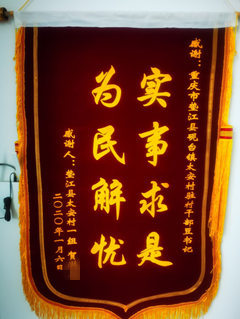 感谢：重庆市垫江县砚台镇太安村驻村干部豆书记
实事求是
为民解忧
感谢人：垫江县太安村一组 贺
二〇二〇年一月六日